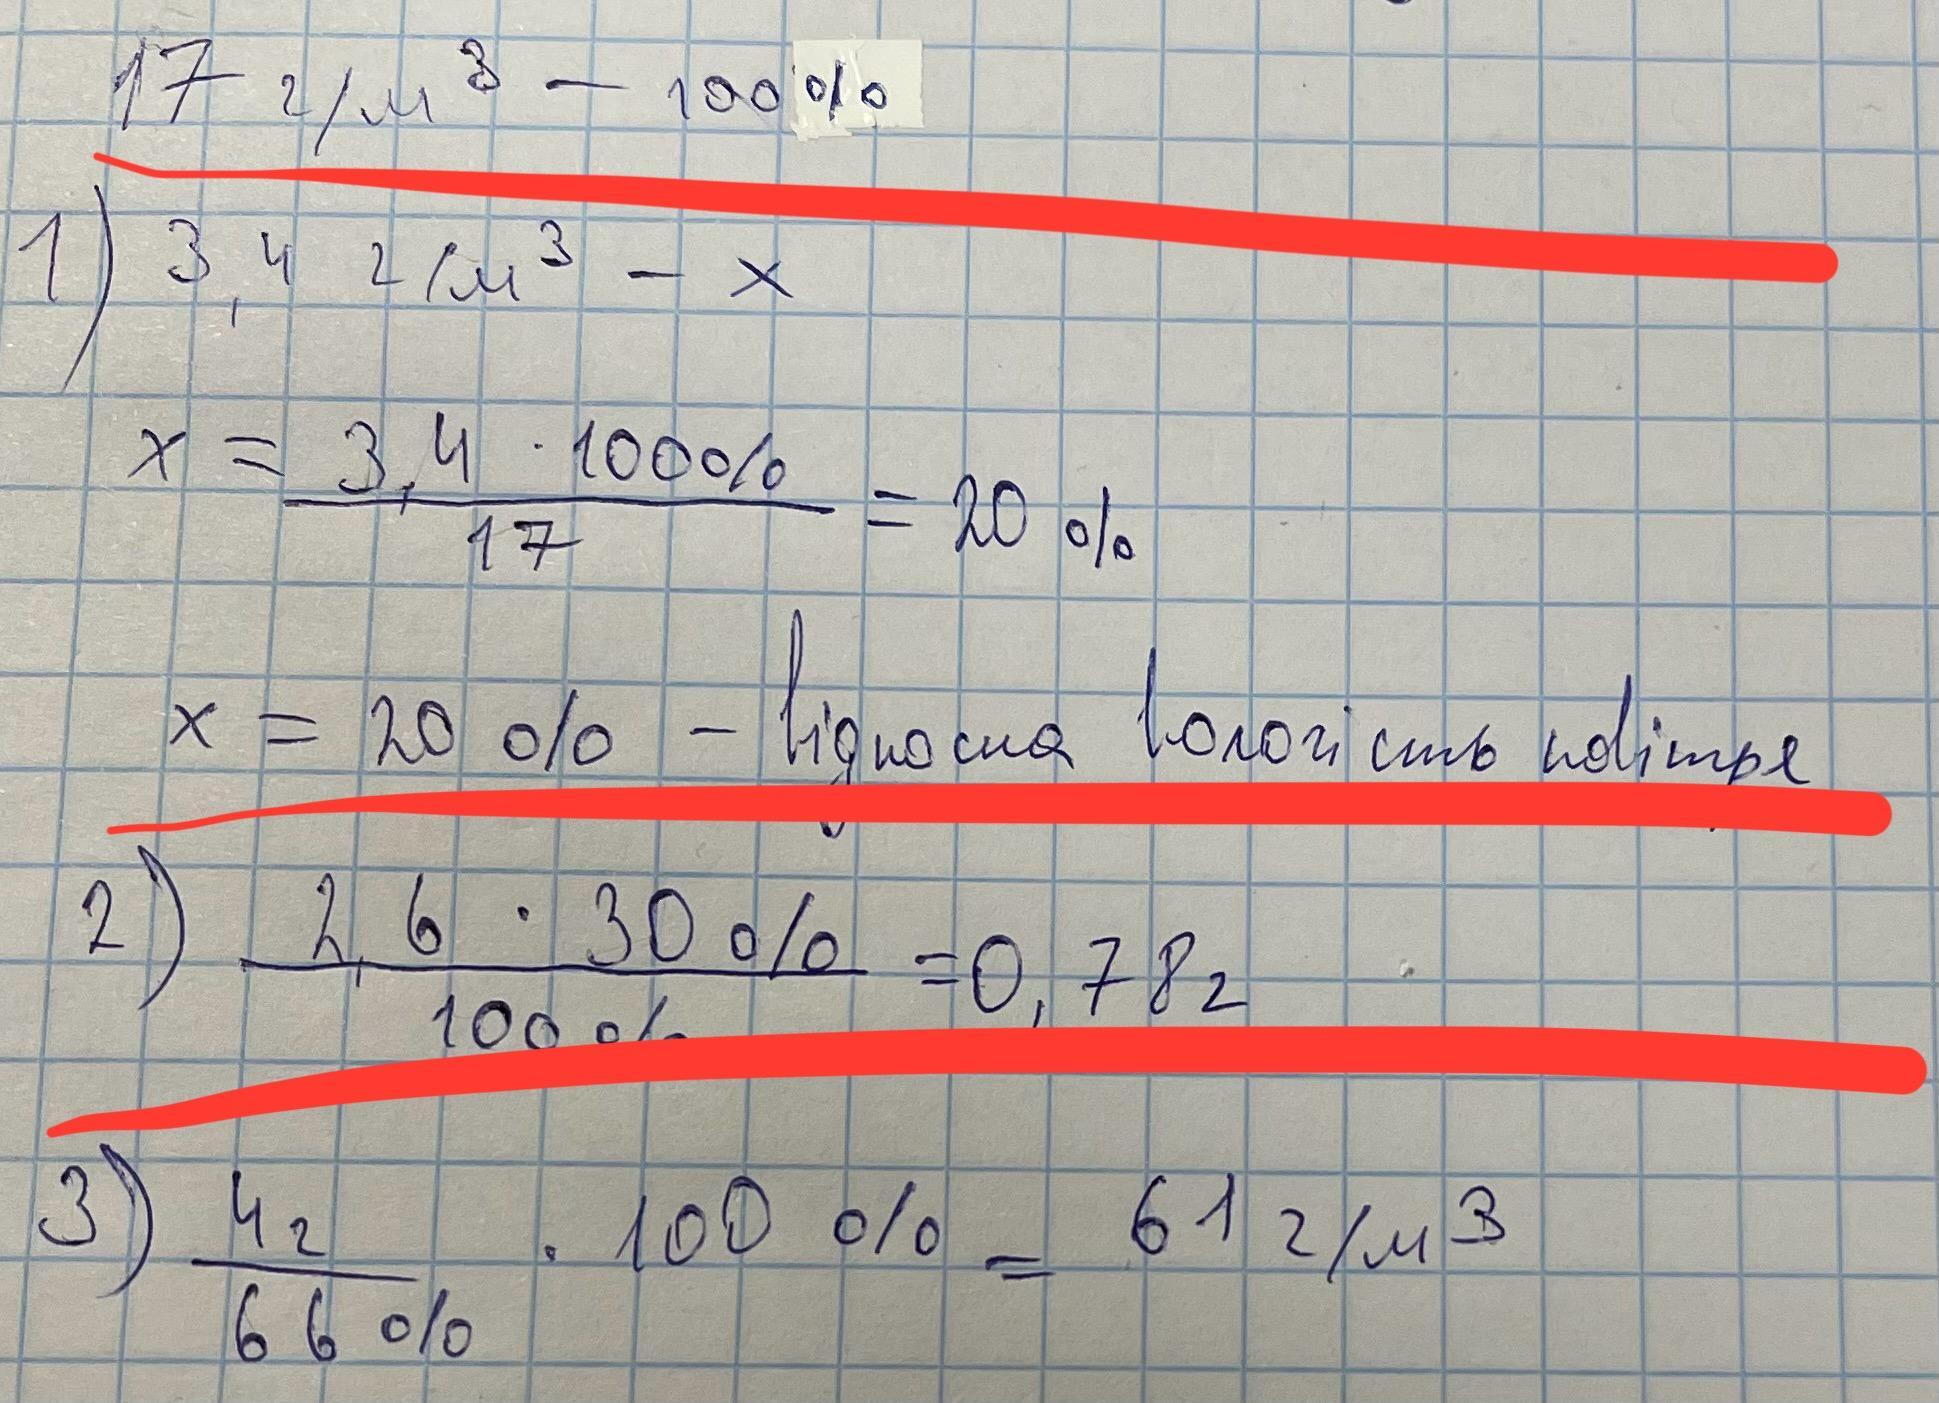 17 г/м³ – 100%
1) 3,4 г/м³ – x
x = 3,4 · 100% / 17 = 20 %
x = 20 % – відносна вологість повітря
2) 2,6 · 30 % / 100 % = 0,78 г
3) 4 г / 66 % · 100 % = 61 г/м³